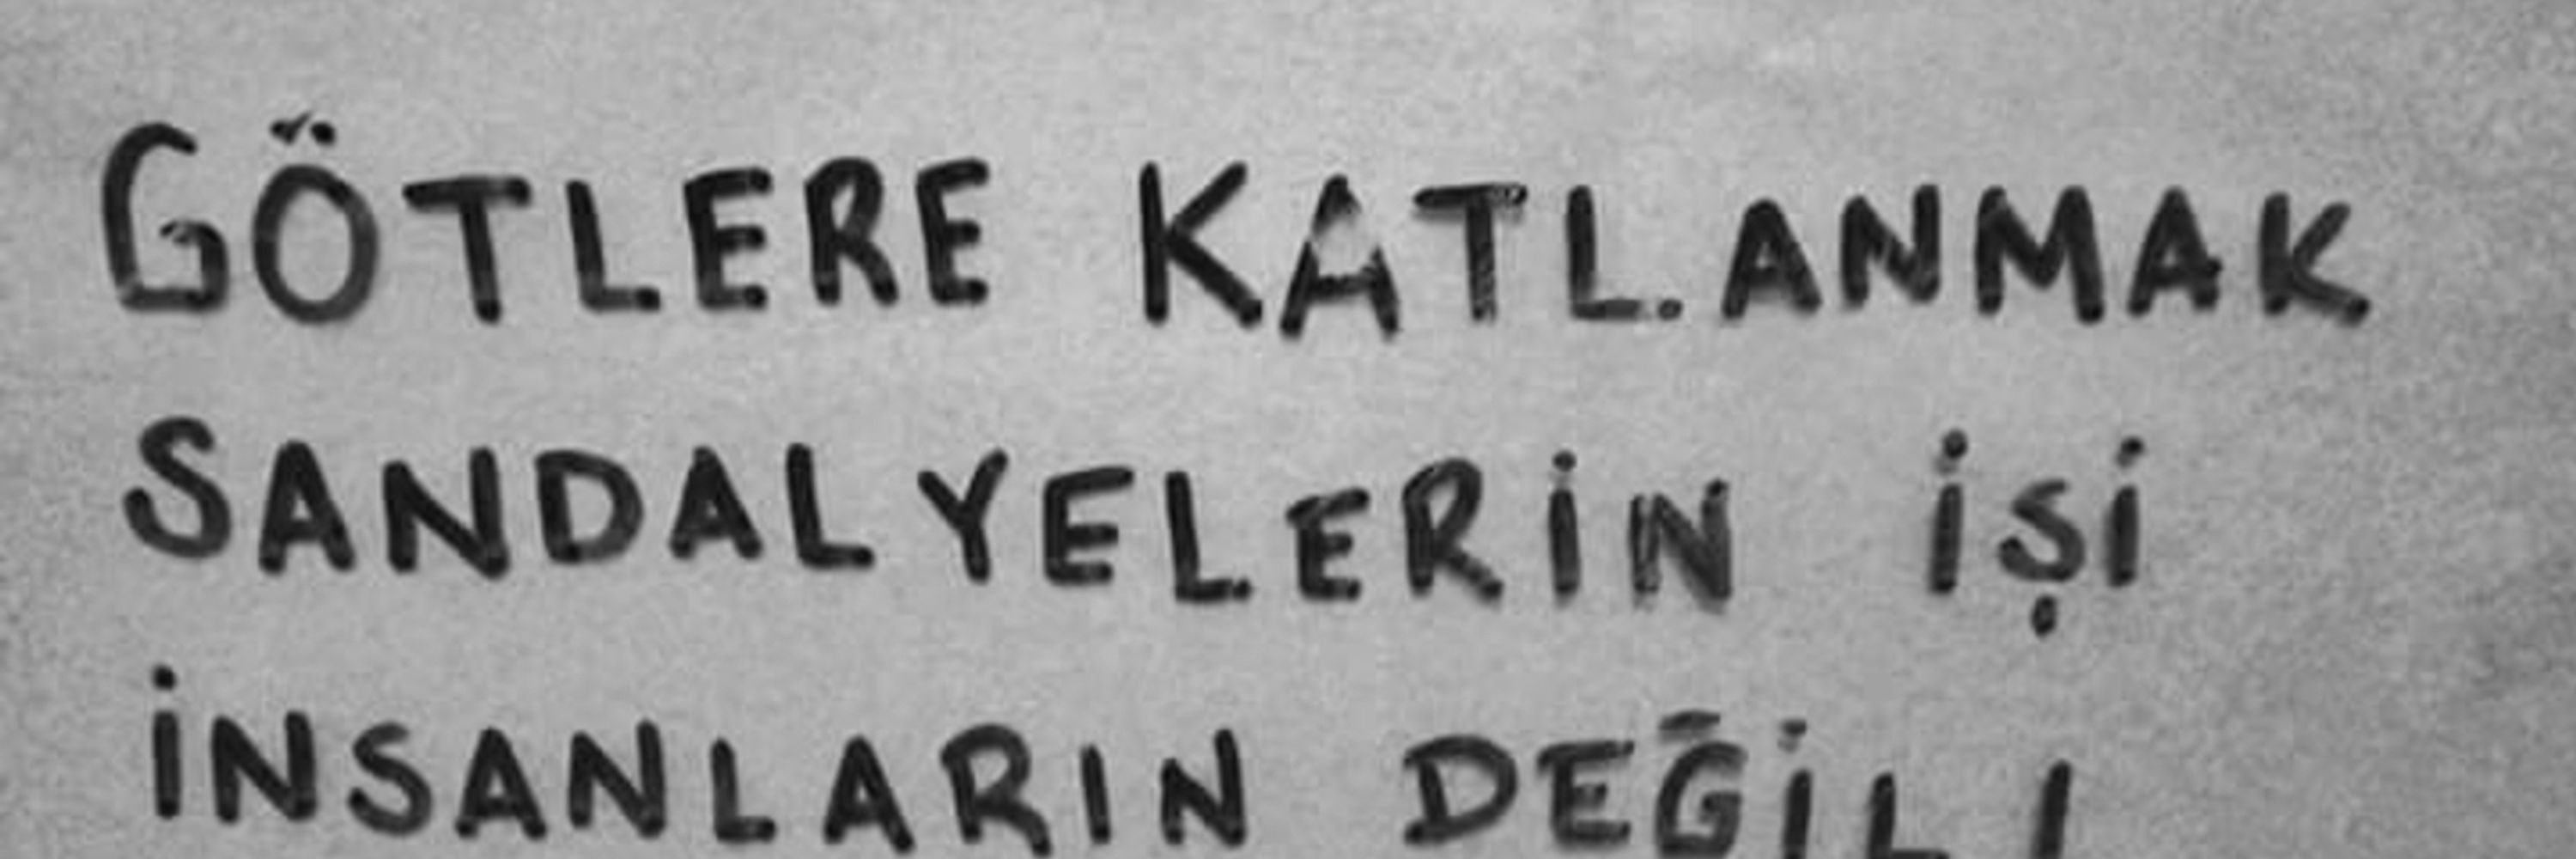 GÖTLERE KATLANMAK
SANDALYELERİN İŞİ
İNSANLARIN DEĞİL!